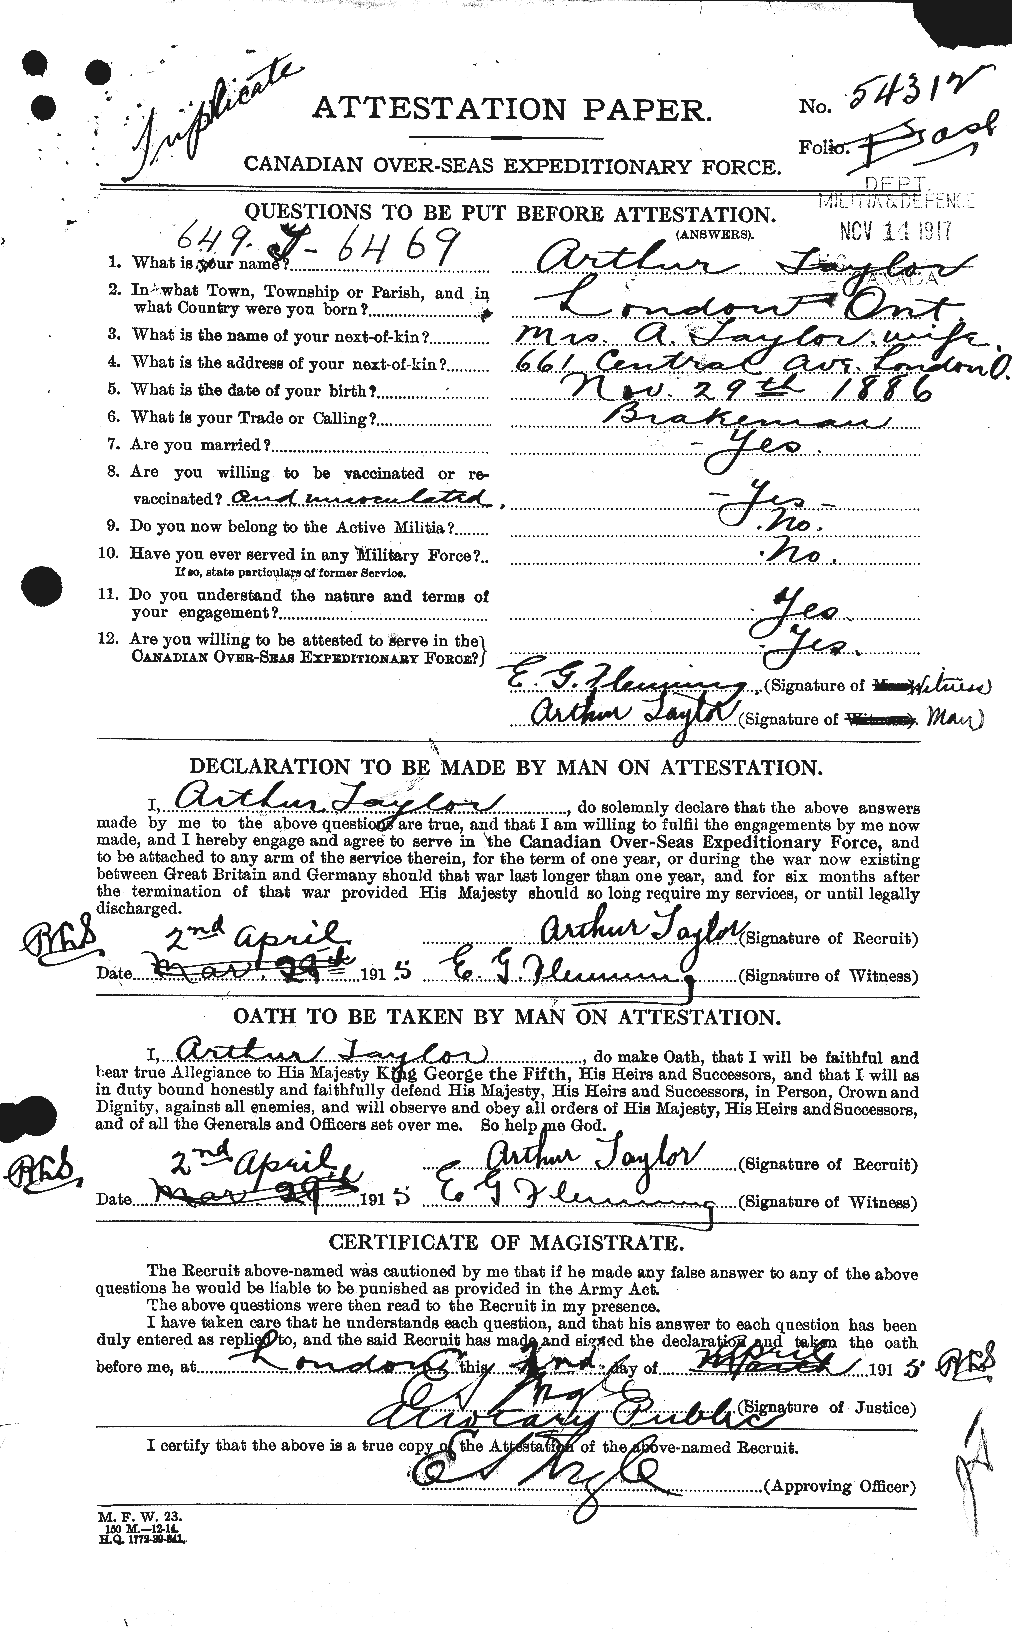 Triplicate
ATTESTATION PAPER.
No. 54312
Folio.
CANADIAN OVER-SEAS EXPEDITIONARY FORCE.
DEPT.
MILITIA & DEFENCE
NOV 14 1917
QUESTIONS TO BE PUT BEFORE ATTESTATION.
(ANSWERS).
649. T- 6469
1. What is your name? Arthur Taylor
2. In what Town, Township or Parish, and in
what Country were you born? London Ont.
3. What is the name of your next-of-kin? Mrs. A. Taylor. wife.
4. What is the address of your next-of-kin? 661 Central Ave. London O.
5. What is the date of your birth? Nov. 29th 1886
6. What is your Trade or Calling? Brakeman
7. Are you married? - Yes.
8. Are you willing to be vaccinated or re-
vaccinated? and innoculated, - Yes -
9. Do you now belong to the Active Militia? No.
10. Have you ever served in any Military Force? No.
If so, state particulars of former Service.
11. Do you understand the nature and terms of
your engagement? Yes
12. Are you willing to be attested to serve in the
CANADIAN OVER-SEAS EXPEDITIONARY FORCE? Yes.
E. G. Fleming (Signature of Man) Witness)
Arthur Taylor (Signature of Witness). Man)
DECLARATION TO BE MADE BY MAN ON ATTESTATION.
I, Arthur Taylor, do solemnly declare that the above answers
made by me to the above questions are true, and that I am willing to fulfil the engagements by me now
made, and I hereby engage and agree to serve in the Canadian Over-Seas Expeditionary Force, and
to be attached to any arm of the service therein, for the term of one year, or during the war now existing
between Great Britain and Germany should that war last longer than one year, and for six months after
the termination of that war provided His Majesty should so long require my services, or until legally
discharged.
2nd April Arthur Taylor (Signature of Recruit)
Date Mar. 29th 1915 E. G. Fleming (Signature of Witness)
OATH TO BE TAKEN BY MAN ON ATTESTATION.
I, Arthur Taylor, do make Oath, that I will be faithful and
bear true Allegiance to His Majesty King George the Fifth, His Heirs and Successors, and that I will as
in duty bound honestly and faithfully defend His Majesty, His Heirs and Successors, in Person, Crown and
Dignity, against all enemies, and will observe and obey all orders of His Majesty, His Heirs and Successors,
and of all the Generals and Officers set over me. So help me God.
2nd April Arthur Taylor (Signature of Recruit)
Date Mar 29th 1915 E G Fleming (Signature of Witness)
CERTIFICATE OF MAGISTRATE.
The Recruit above-named was cautioned by me that if he made any false answer to any of the above
questions he would be liable to be punished as provided in the Army Act.
The above questions were then read to the Recruit in my presence.
I have taken care that he understands each question, and that his answer to each question has been
duly entered as replied to, and the said Recruit has made and signed the declaration and taken the oath
before me, at London this 2nd day of March April 1915
(Signature of Justice)
A Notary Public
I certify that the above is a true copy of the Attestation of the above-named Recruit.
(Approving Officer)
M. F. W. 23.
150 M.—12-14.
H.Q. 1772-39-841.